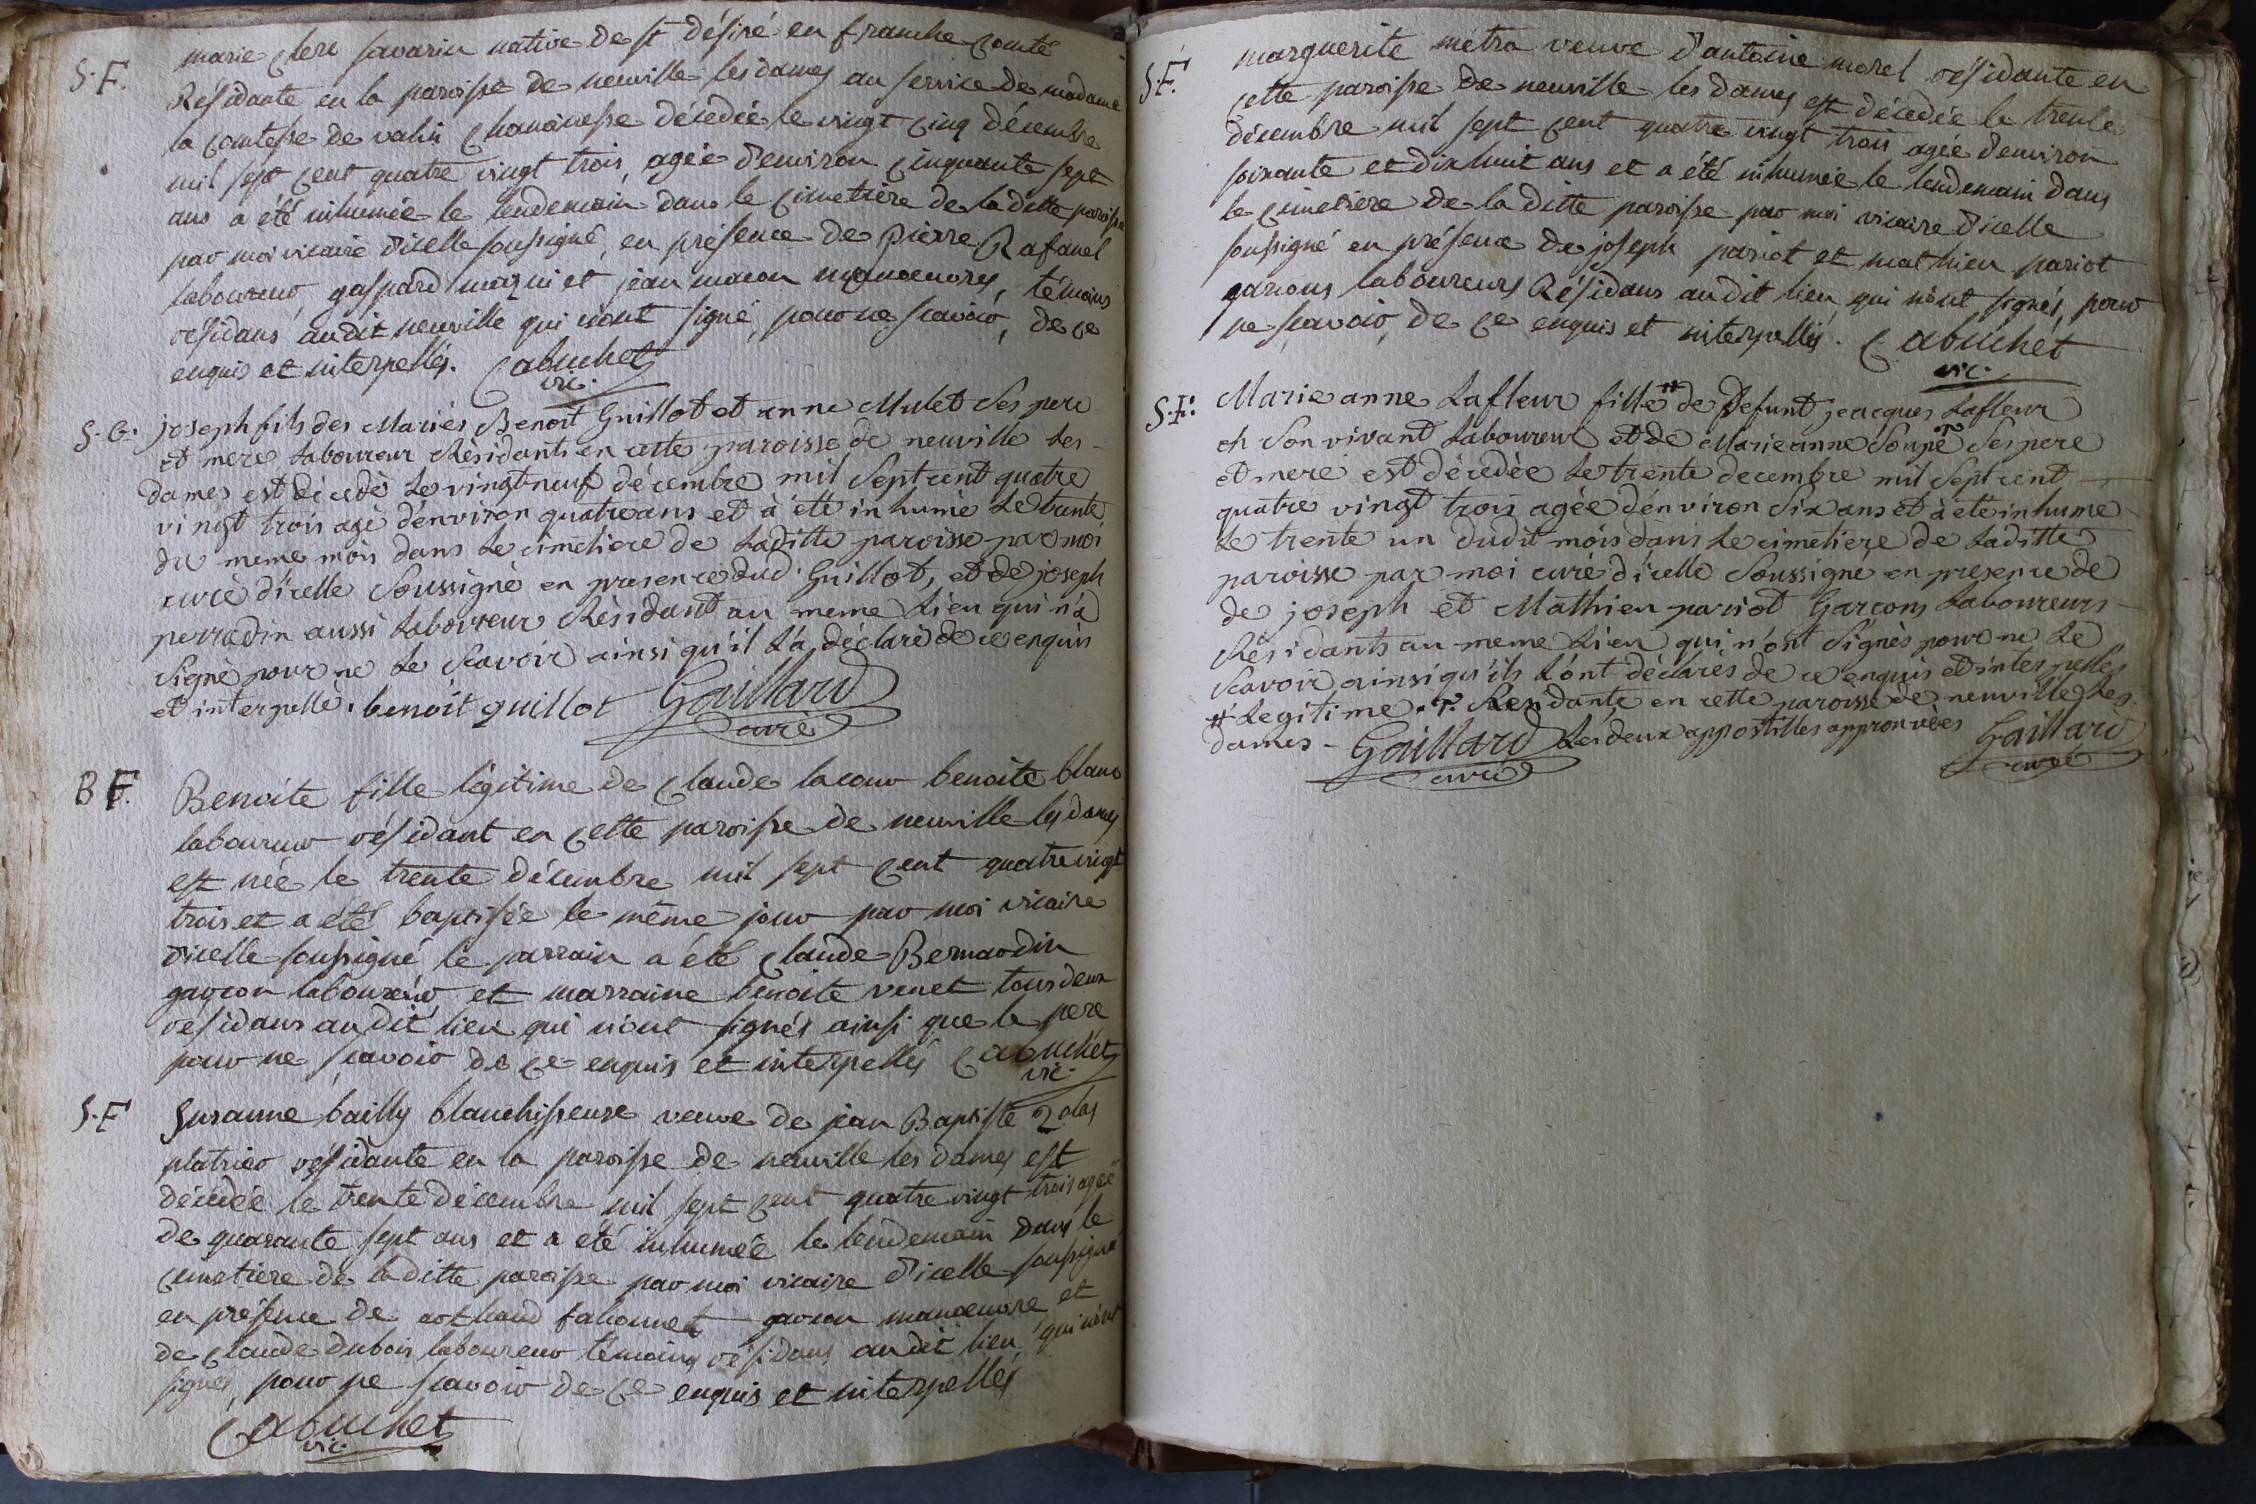 S.F. marie clere savarin native de st désiré en franche comté
Résidante en la paroisse de neuville les dames au service de madame
la comtesse de valin chanoinesse décédée le vingt cinq décembre
mil sept cent quatre vingt trois, agée d'environ cinquante sept
ans a été inhumée le lendemain dans le cimetière de la ditte paroisse
par moi vicaire d'icelle soussigné, en présence de pierre Rafanel
laboureur, gaspard et jean macon manoeuvres, témoins
résidans audit neuville qui n'ont signé, pour ne scavoir, de ce
enquis et interpellés. Cabuchet
vic.
S.G. joseph fils des Mariés Benoit Guillot et anne Mulet ses pere
et mere Laboureur Résidants en cette paroisse de neuville les-
dames est décedé le vingt neuf décembre mil Sept cent quatre
vingt trois agé d'environ quatre ans et à été inhumé le trente
du meme mois dans le cimetiere de laditte paroisse par moi
curé d'icelle Soussigné en presence dud. Guillot, et de joseph
perradin aussi Laboureur Résidant au meme Lien qui n'a
signé pour ne le Scavoir ainsi qu'il l'a déclaré de ce enquis
et interpellé. benoit guillot Gaillard
curé
B F. Benoite fille légitime de claude lacour benoite blanc
laboureur résidant en cette paroisse de neuville les dames
est née le trente décembre mil sept cent quatre vingt
trois et a été baptisée le même jour par moi vicaire
d'icelle soussigné le parrain a été claude Bernardin
garcon laboureur et marraine benoite venet tous deux
résidans audit lieu qui n'ont signés ainsi que le pere
pour ne scavoir de ce enquis et interpellés Cabuchet
vic.
S.F Susanne bailly blanchisseuse veuve de jean Baptiste
platrier résidante en la paroisse de neuville les dames est
décédée le trente décembre mil sept cent quatre vingt trois agée
de quarante sept ans et a été inhumée le lendemain dans le
cimetière de la ditte paroisse par moi vicaire d'icelle soussigné
en présence de garcon manoeuvre et
de claude dubois laboureur témoins résidans audit lieu qui n'ont
signés, pour ne scavoir de ce enquis et interpellés
Cabuchet
vic.
S.F. marguerite métra veuve d'antoine morel résidante en
cette paroisse de neuville les dames est décédée le trente
décembre mil sept cent quatre vingt trois agée d'environ
soixante et dix huit ans et a été inhumée le lendemain dans
le cimetière de la ditte paroisse par moi vicaire d'icelle
soussigné en présence de joseph pariot et mathieu pariot
garcons laboureurs Résidans audit lieu, qui n'ont signés, pour
ne scavoir, de ce enquis et interpellés. Cabuchet
vic.
S.F. Marie anne Lafleur fille # de Defunt jeacques Lafleur
en Son vivant Laboureur et de Marie anne Soupe Ses pere
et mere est décédée le trente decembre mil Sept cent
quatre vingt trois agée d'environ Six ans et à été inhume
le trente un dudit mois dans le cimetiere de laditte
paroisse par moi curé d'icelle Soussigné en presence de
de joseph et Mathieu pariot Garcons Laboureurs
Résidants au meme Lieu qui n'ont Signés pour ne le
Scavoir ainsi qu'ils l'ont déclarés de ce enquis et interpellés
# Legitime. Residante en cette paroisse de neuville les-
dames - Gaillard Les deux appostilles approuvées Gaillard
curé curé